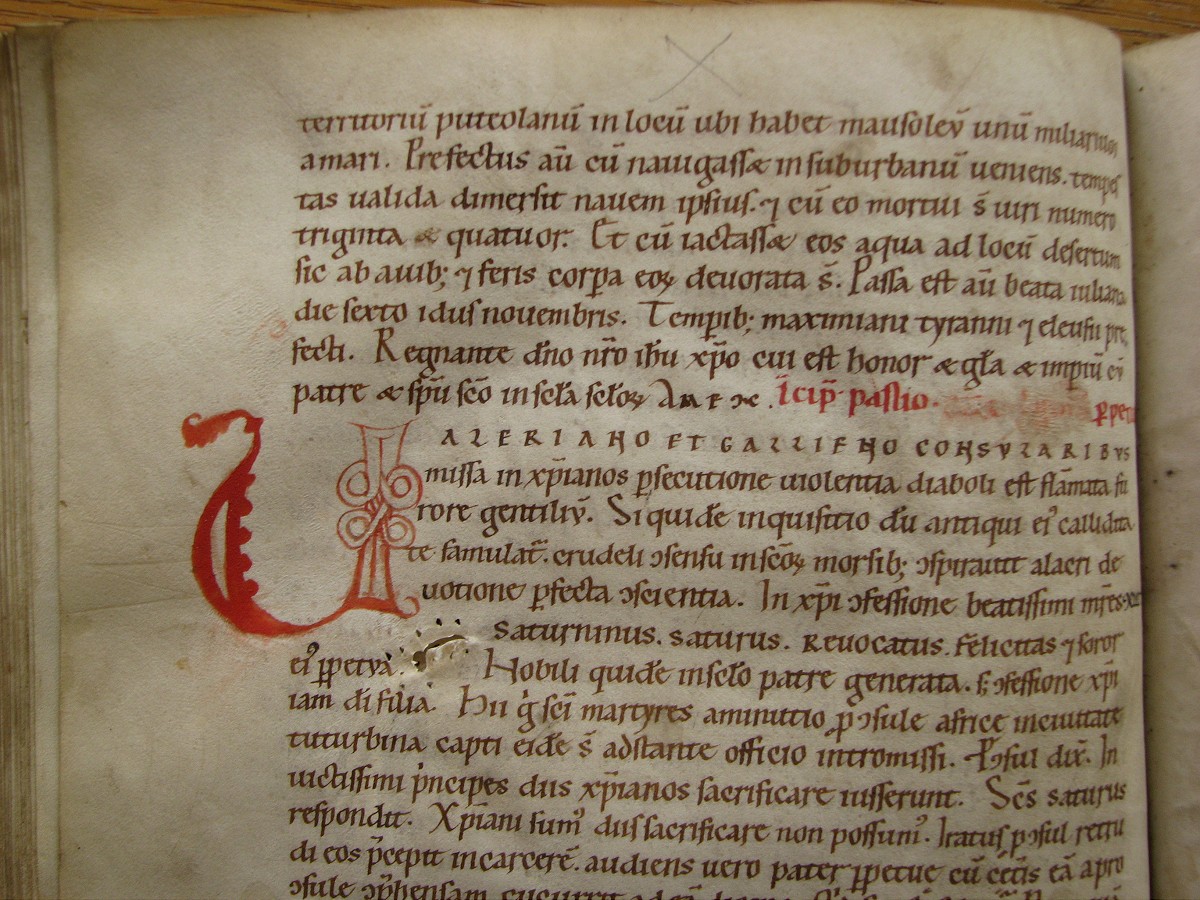 territoriū puteolanū in locū ubi habet mausoleū unū miliarium
amari. Prefectus aū cū nauigassæ in suburbanū ueniens. tempes
tas ualida dimersit nauem ipsius. ⁊ cū eo mortui s̄ uiri numero
triginta æ quatuor. Et cū iactassæ eos aqua ad locū desertum
sic ab auib; ⁊ feris corꝑa eoꝝ deuorata s̄. Passa est aū beata iuliana
die sexto idus nouembris. Temꝑib; maximiani tyranni ⁊ eleusii pre
fecti. Regnante dn̄o nr̄o ih̄u xp̄o cui est honor æ gl̄a æ imꝑiū cū
patre æ sp̄u sc̄o in scl̄a scl̄oꝝ Amen. Īcip̄ passio. ꝑpetu
VALERIANO ET GALLIENO CONSULARIBUS
missa in xp̄ianos ꝑsecutione uiolentia diaboli est flāmata fu
rore gentiliū. Siquidē inquisitio dū antiqui ei᾽ callidita
te famulat᷑. crudeli ↄsensu in sc̄oꝝ morsib; ↄspirauit alacri de
uotione ꝑfecta ↄscientia. In xp̄i ↄfessione beatissimi mr̄es. xp̄i
saturninus. saturus. Reuocatus. felicitas ⁊ soror
ei᾽ ꝑpetua. Nobili quidē in scl̄o patre generata. s; ↄfessione xp̄i
iam dī filia. Hii g̍ sc̄i martyres a minutio ꝓↄsule africe in ciuitate
tuturbina capti eidē s̄ adstante officio intromissi. Pↄsul dix̄. In
uictissimi p̍ncipes diis xp̄ianos sacrificare iusserunt. Sc̄s saturus
respondit. Xp̄iani sum᾽ diis sacrificare non possum᾽. Iratus pↄsul retru
di eos p̄cepit in carcerē. audiens uero pater ꝑpetue cū cet̄is eā a pro
ↄsule ↄp̄hensam cucurrit ad